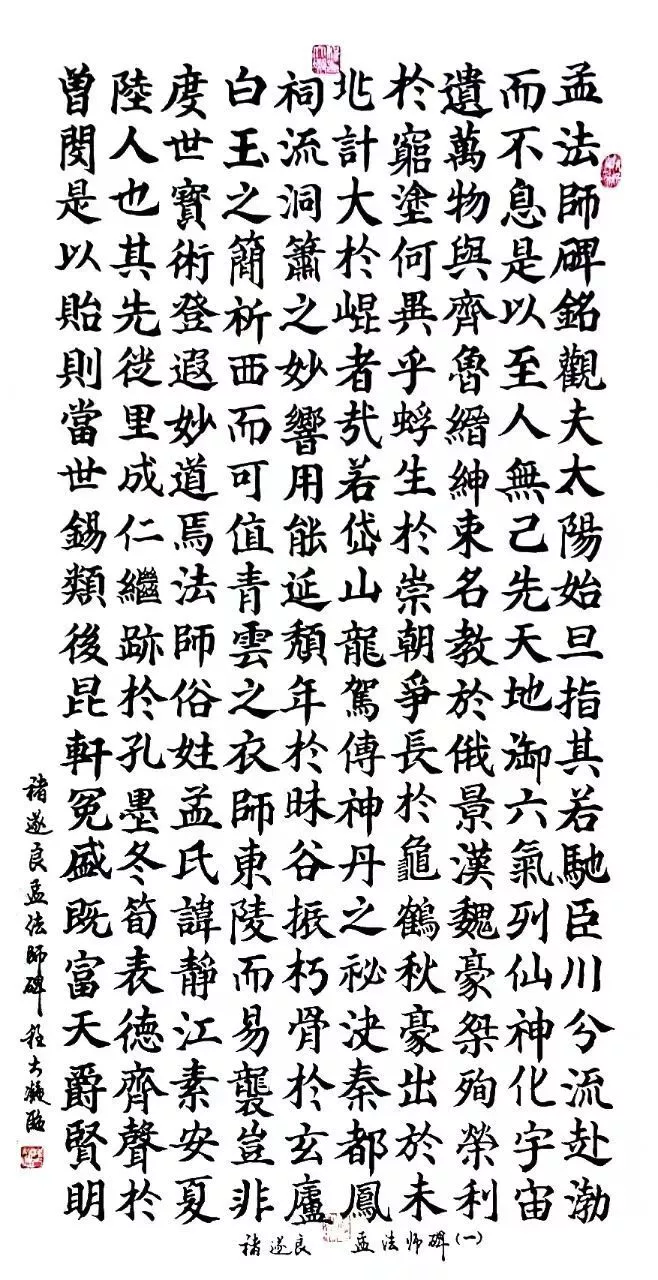 孟法師碑銘觀夫太陽始旦指其若馳臣川兮流赴渤
而不息是以至人無己先天地御六氣列仙神化宇宙
遺萬物與齊魯縉紳束名教於俄景漢魏豪桀殉榮利
於窮塗何異乎蜉生於崇朝爭長於龜鶴秋豪出於未
兆計大於崐者㢤若岱山龍駕傳神丹之祕決秦都鳳
祠流洞簫之妙響用能延頹年於昧谷振朽骨於玄廬
白玉之簡祈西而可值青雲之衣師東陵而易襲豈非
度世寶術登遐妙道焉法師俗姓孟氏諱靜江素安夏
陸人也其先徙里成仁繼跡於孔墨冬筍表德齊聲於
曾閔是以貽則當世錫類後昆軒冕盛既富天爵賢明
褚遂良孟法師碑程大巍臨
褚遂良 孟法师碑(一)